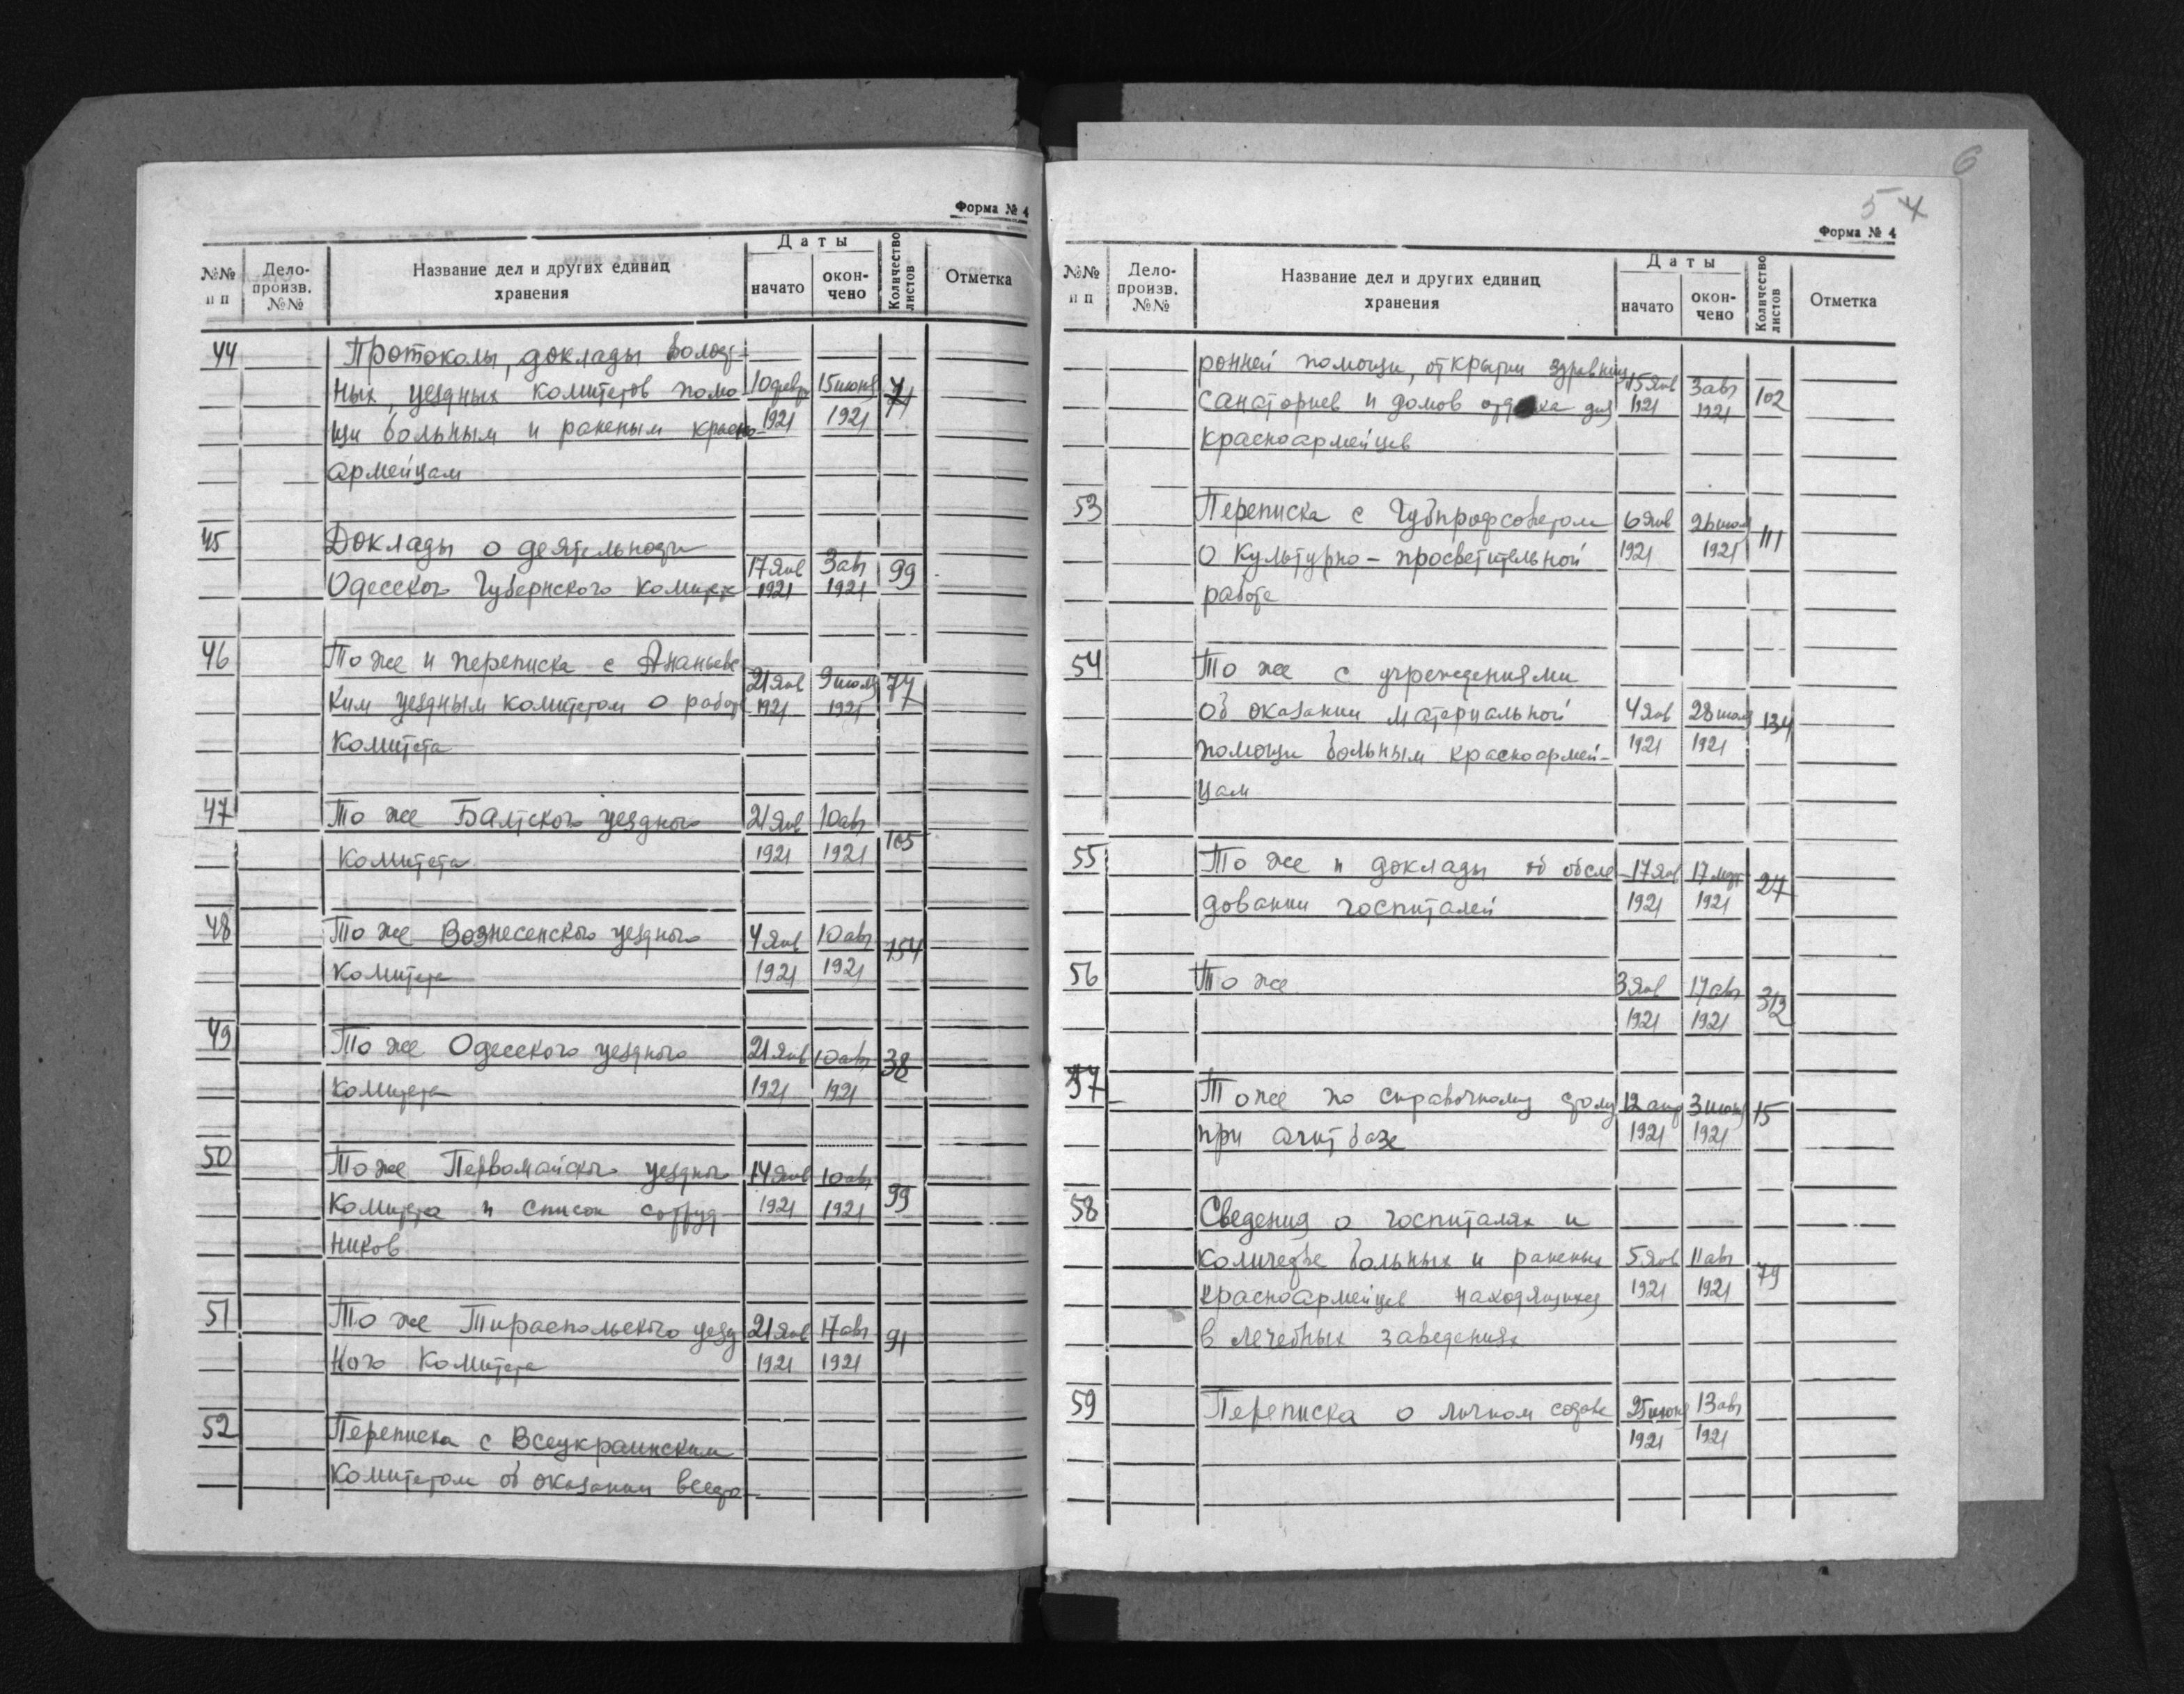 Форма № 4
№№ п п
Дело-произв. №№
Название дел и других единиц хранения
Даты
начато
окон-чено
Количество листов
Отметка
44 Протоколы, доклады волост-
ных, уездных комитетов помо 10 февр 15 июня
щи больным и раненым красно- 1921 1921
армейцам
45 Доклады о деятельности 17 янв 3 авг 99
Одесского Губернского комитета 1921 1921
46 То же и переписка с Ананьевс 21 янв 9 июля 77
ким уездным комитетом о работе 1921 1921
комитета
47 То же Балтского уездного 21 янв 10 авг 105
комитета 1921 1921
48 То же Вознесенского уездного 4 янв 10 авг 154
комитета 1921 1921
49 То же Одесского уездного 21 янв 10 авг 38
комитета 1921 1921
50 То же Первомайского уездного 14 янв 10 авг 99
комитета и список сотруд- 1921 1921
ников
51 То же Тираспольского уезд 21 янв 17 авг 91
ного комитета 1921 1921
52 Переписка с Всеукраинским
комитетом об оказании всесто-
6
5 4
Форма № 4
№№ п п
Дело-произв. №№
Название дел и других единиц хранения
Даты
начато
окон-чено
Количество листов
Отметка
ронней помощи, открытии здравниц 15 янв 3 авг 102
санаториев и домов отдыха для 1921 1921
красноармейцев
53 Переписка с Губпрофсоветом 6 янв 26 июля 111
о культурно-просветительной 1921 1921
работе
54 То же с учреждениями
об оказании материальной 4 янв 28 июля 134
помощи больным красноармей- 1921 1921
цам
55 То же и доклады об обсле- 17 янв 17 март 27
довании госпиталей 1921 1921
56 То же 3 янв 17 авг 312
1921 1921
57 То же по справочному столу 12 апр 3 июня 15
при агитбазе 1921 1921
58 Сведения о госпиталях и
количестве больных и раненых 5 янв 11 авг 79
красноармейцев находящихся 1921 1921
в лечебных заведениях
59 Переписка о личном составе 25 июня 13 авг
1921 1921